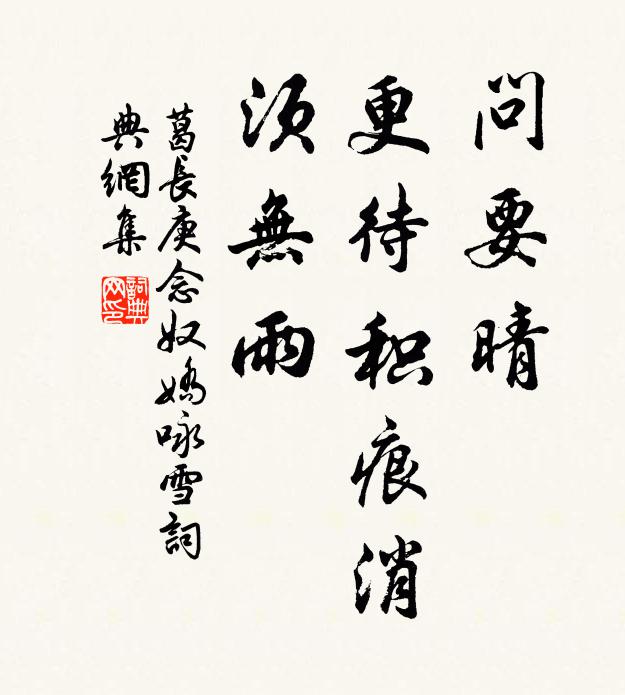 問要晴
更待积痕消
須無雨
葛長庚念奴嬌咏雪詞
典網集
詞典
网印